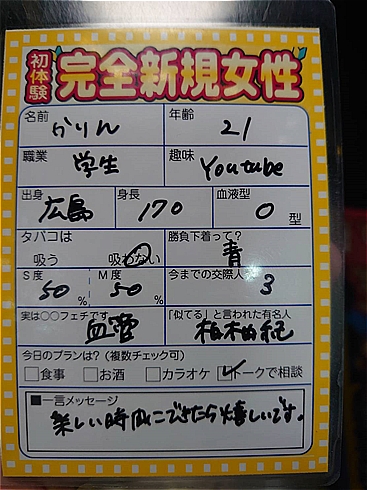 初体験 完全新規女性
名前 かりん 年齢 21
職業 学生 趣味 Youtube
出身 広島 身長 170 血液型 O 型
タバコは 吸う 吸わない 勝負下着って? 青
S度 50 % M度 50 % 今までの交際人 3
実は○○フェチです 血管 「似てる」と言われた有名人 柏木由紀
今日のプランは?(複数チェック可)
□食事 □お酒 □カラオケ ☑トークで相談
■一言メッセージ
楽しい時間にできたら嬉しいです。